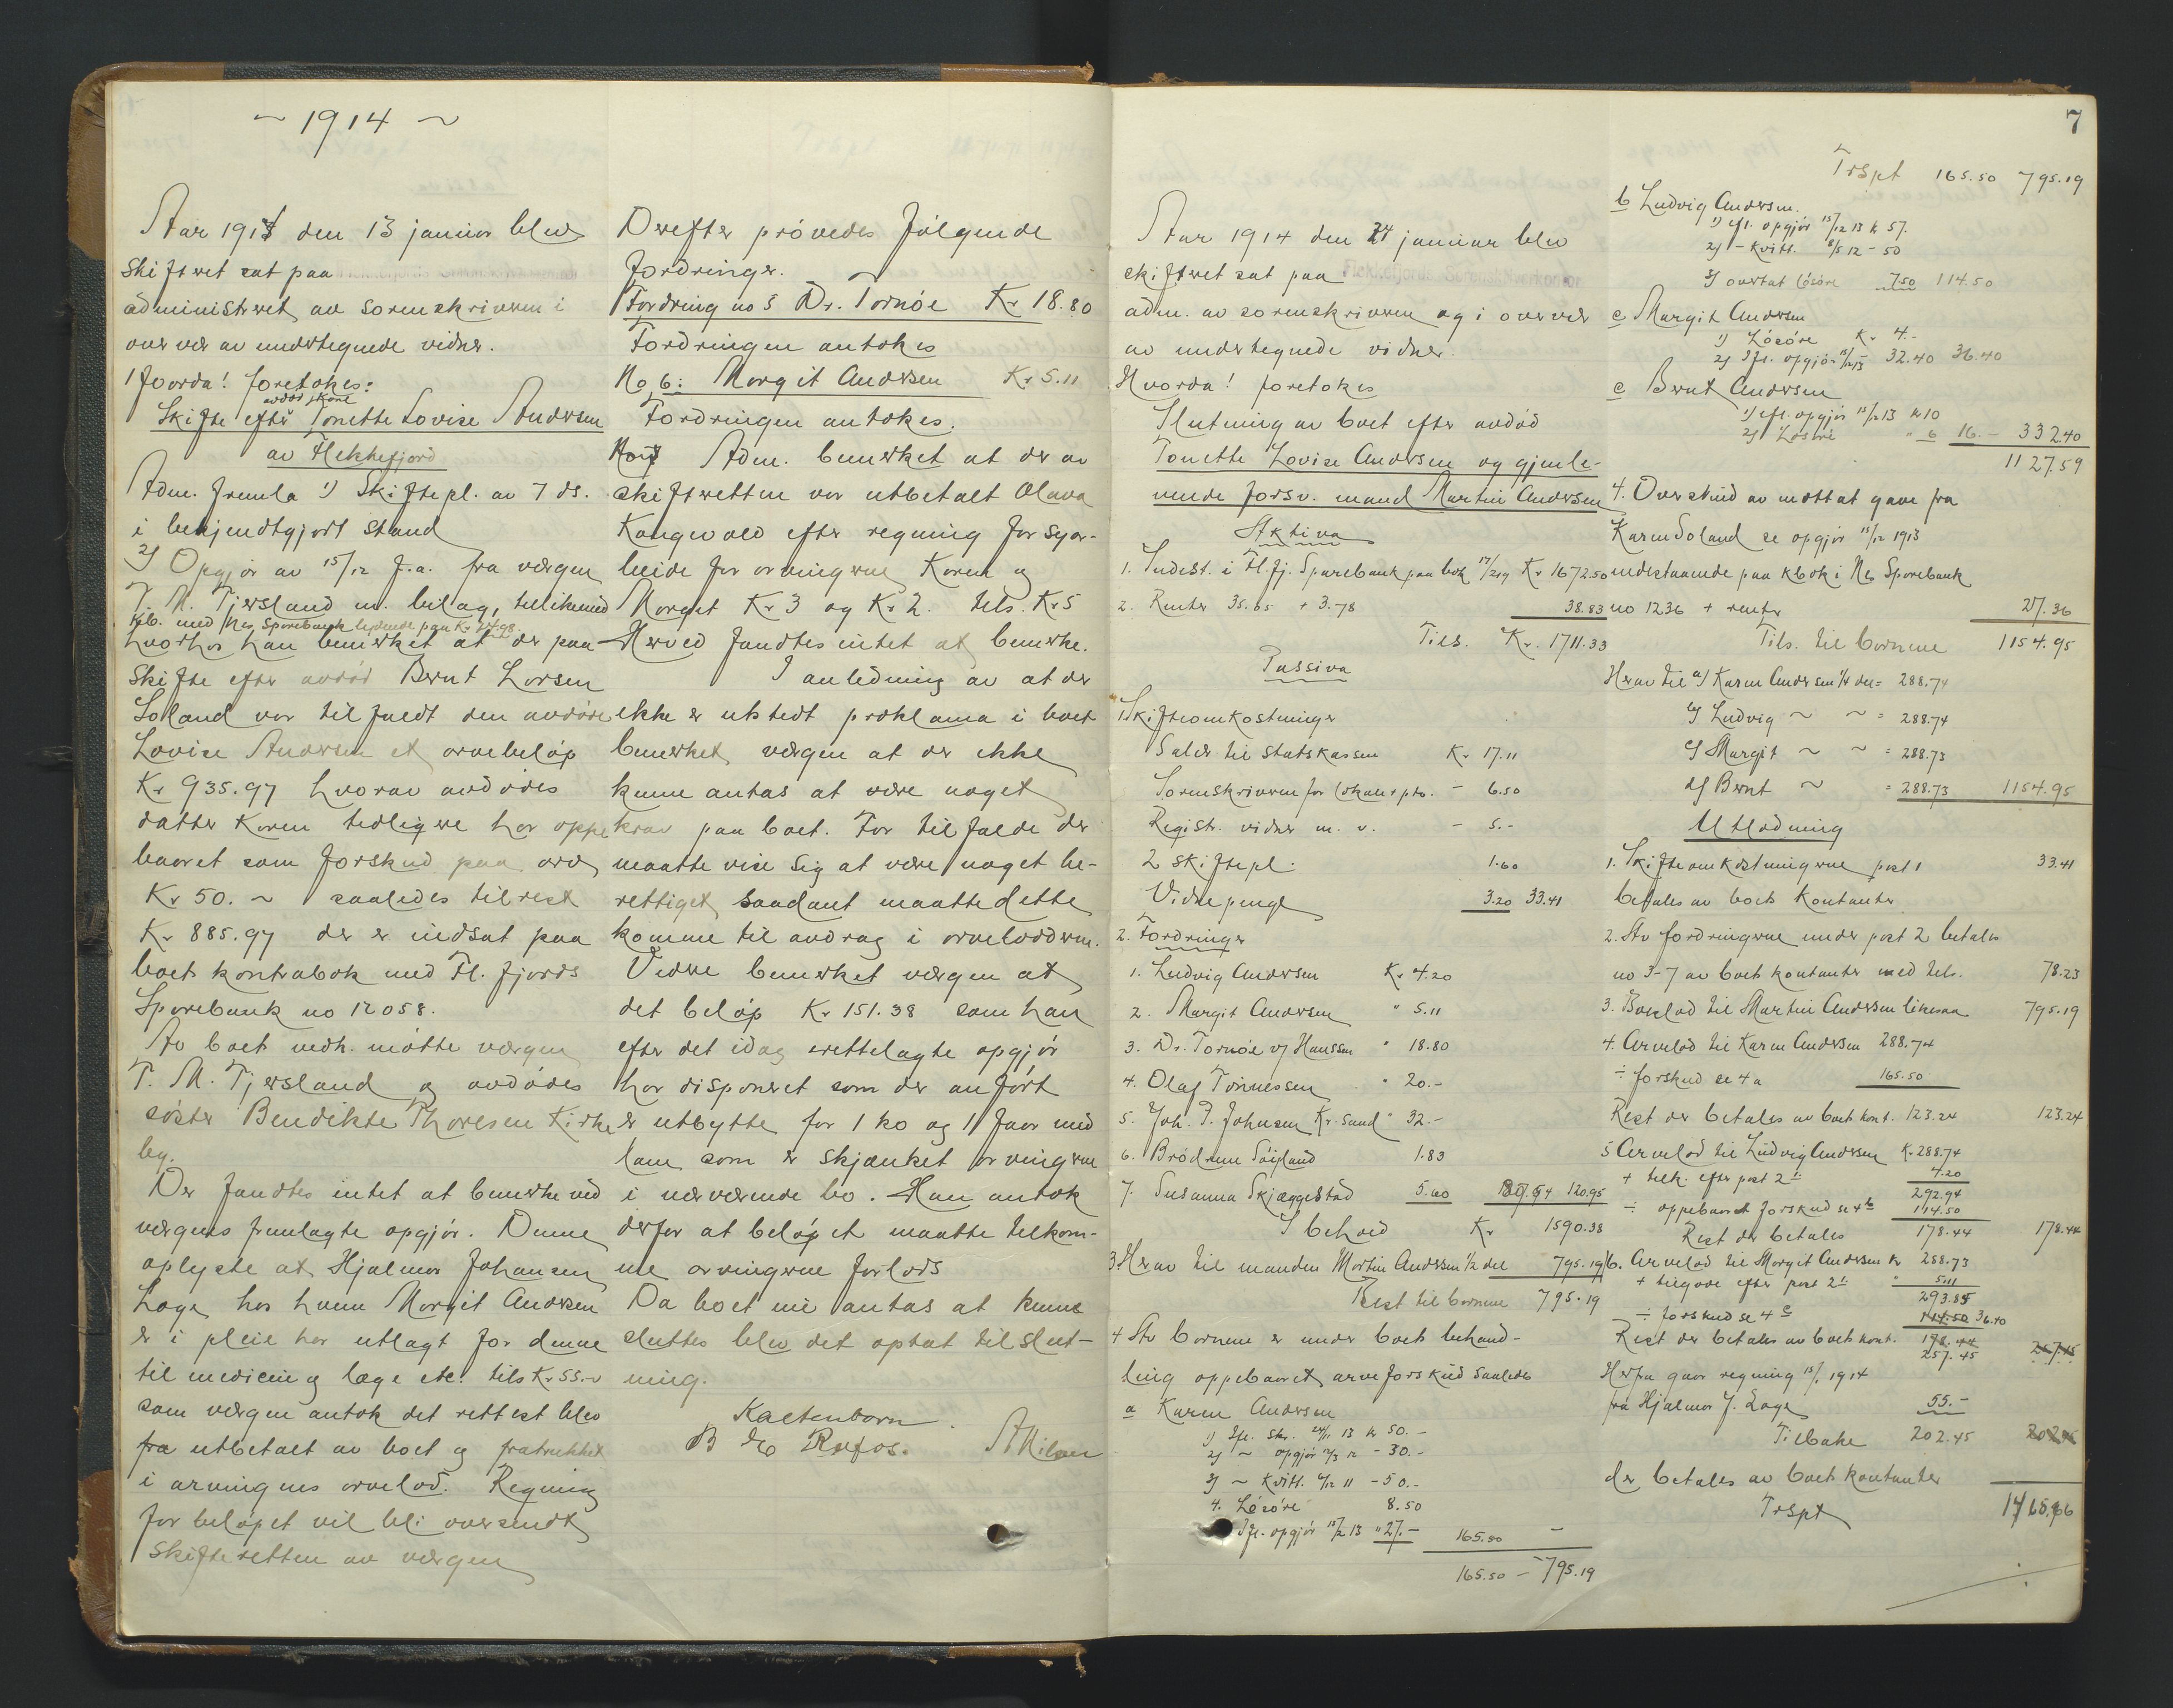 ~ 1914 ~
Aar 1914 den 13 januar blev
skifteret sat paa
administreret av sorenskriveren i
overvær av undertegnede vidner.
Hvorda! foretokes:
avdød kone
Skifte efter Tonette Lovise Andersen
av Flekkefjord
Adm. fremla 1) Skiftepl. av 7 ds.
i bekjendtgjort stand
2) Opgjør av 15/12 f.a. fra værgen
T. M. Tjersland m. bilag, tillikemed
kb. med Nes Sparebank lydende paa Kr 24.98.
hvorhos han bemerket at der paa
Skifte efter avdød Bernt Larsen
Soland var tilfaldt den avdøde
Lovise Andersen et arvebeløp
Kr 935.97 hvorav avdødes
datter Karen tidligere har oppe
baaret som forskud paa arv
Kr 50. ~ saaledes til rest
Kr 885.97 der er indsat paa
boets kontrabok med Fl. fjords
Sparebank no 12058.
Av boets vedk. møtte værgen
T. M. Tjersland og avdødes
søster Bendikte Thoresen Kirke
by.
Der fandtes intet at bemerke ved
værgens fremlagte opgjør. Denne
oplyste at Hjalmar Johansen
Loge hos hvem Margit Andersen
er i pleie har utlagt for denne
til medicin og læge etc. tils Kr 55.-
som værgen antok det rettest blev
fra utbetalt av boet og fratrukket
i arvingens arvelod. Regning
for beløpet vil bli oversendt
skifteretten av værgen
Derefter prøvedes følgende
fordringer.
Fordring no 5 Dr. Tornøe Kr 18.80
Fordringen antokes
No 6: Margit Andersen Kr 5.11
Fordringen antokes.
No 7 Adm. bemerket at der av
skifteretten var utbetalt Olava
Kongevold efter regning for syar-
beide for arvingerne Karen og
Margit Kr 3 og Kr 2. tils. Kr 5
Herved fandtes intet at bemerke.
I anledning av at der
ikke er utstedt proklama i boet
bemerket værgen at der ikke
kunne antas at være noget
krav paa boet. For tilfælde der
maatte vise sig at være noget be-
rettiget saadant maatte dette
komme til avdrag i arveloddene.
Videre bemerket værgen at
det beløp Kr 151.38 som han
efter det idag irettelagte opgjør
har disponeret som der anført
er utbytte for 1 ko og 1 faar med
lam som er skjænket arvingerne
i nærværende bo. Han antok
derfor at beløpet maatte tilkom-
me arvingerne forlods
Da boet nu antas at kunne
sluttes blev det optat til slut-
ning.
Kaltenborn.
B Refos.
7
Aar 1914 den 24 januar blev
skifteret sat paa Flekkefjords Sorenskriverkontor
adm. av sorenskriveren og i overvær
av undertegnede vidner.
Hvorda! foretokes
Slutning av boet efter avdød
Tonette Lovise Andersen og gjenle-
vende forsv. mand Martin Andersen
Aktiva
1. Indest. i Fl.fj. Sparebank paa bok Kr 1672.50
2. Renter 35.05 + 3.78 38.83
Tils. Kr. 1711.33
Passiva
1 Skifteomkostninger
Salær til statskassen Kr 17.11
Sorenskriveren for lokale + pto. - 6.50
Registr. vidner m. v. - 5.-
2 skiftepl. 1.60
Vidnepenge 3.20 33.41
2. Fordringer
1. Ludvig Andersen Kr 4.20
2. Margit Andersen " 5.11
3. Dr. Tornøe v/ Hanssen " 18.80
4. Olaf Tønnessen " 20.-
5. Joh. T. Johnsen Kr. sand " 32.-
6. Brødrene Søyland 1.83
7. Susanna Skjæggestad 5.00 120.95
I behold Kr 1590.38
3 Herav til manden Martin Andersen 1/2 del 795.19
Rest til børnene 795.19
4 Av børnene er under boets behand-
ling oppebaaret arveforskud saaledes
a Karen Andersen
1) Ifl. skr. 24/11 13 kr 50.-
2) ~ opgjør 12/3 12 - 30.-
3) ~ kvitt. 4/12 11 - 50.-
4. Løsøre 8.50
Ifl. opgjør 15/12 13 " 27.- 165.50 -
165.50 - 795.19
Trspt 165.50 795.19
b Ludvig Andersen.
1) efl. opgjør 15/12 13 k 57.
2) - kvitt. 8/5 12 - 50
3) overtat løsøre 7.50 114.50
c Margit Andersen
1) Løsøre Kr 4.-
2) Ifl. opgjør 15/12 13 32.40 36.40
c Bernt Andersen
1) efl. opgjør 15/12 13 kr 10
2) Løsøre " 6 16.- 332.40
1127.59
4. Overskud av mottat gave fra
Karen Soland se opgjør 15/12 1913
indestaaende paa kbok i Nes Sparebank
no 1236 + renter 27.36
Tils. til børnene 1154.95
Herav til a) Karen Andersen 1/4 del = 288.74
b) Ludvig ~ ~ = 288.74
c) Margit ~ ~ = 288.73
d) Bernt ~ = 288.73 1154.95
Utlodning
1. Skifteomkostningerne post 1 33.41
betales av boets kontanter
2. Av fordringerne under post 2 betales
no 3-7 av boets kontanter med tils. 78.23
3. Boslod til Martin Andersen likesaa 795.19
4. Arvelod til Karen Andersen 288.74
÷ forskud se 4 a 165.50
Rest der betales av boets kont. 123.24 123.24
5 Arvelod til Ludvig Andersen Kr. 288.74
+ tilk. efter post 2 1 4.20
292.94
÷ oppebaaret forskud se 4 b 114.50
Rest der betales 178.44 178.44
6. Arvelod til Margit Andersen kr 288.73
+ tilgode efter post 2 " 5.11
293.85
÷ forskud se 4 c 114.50 36.40
Rest der betales av boets kont. 178.44
257.45 257.45
Herfra gaar regning 15/1 1914
fra Hjalmar J. Loge 55.-
Tilbake 202.45
der betales av boets kontanter
Trspt